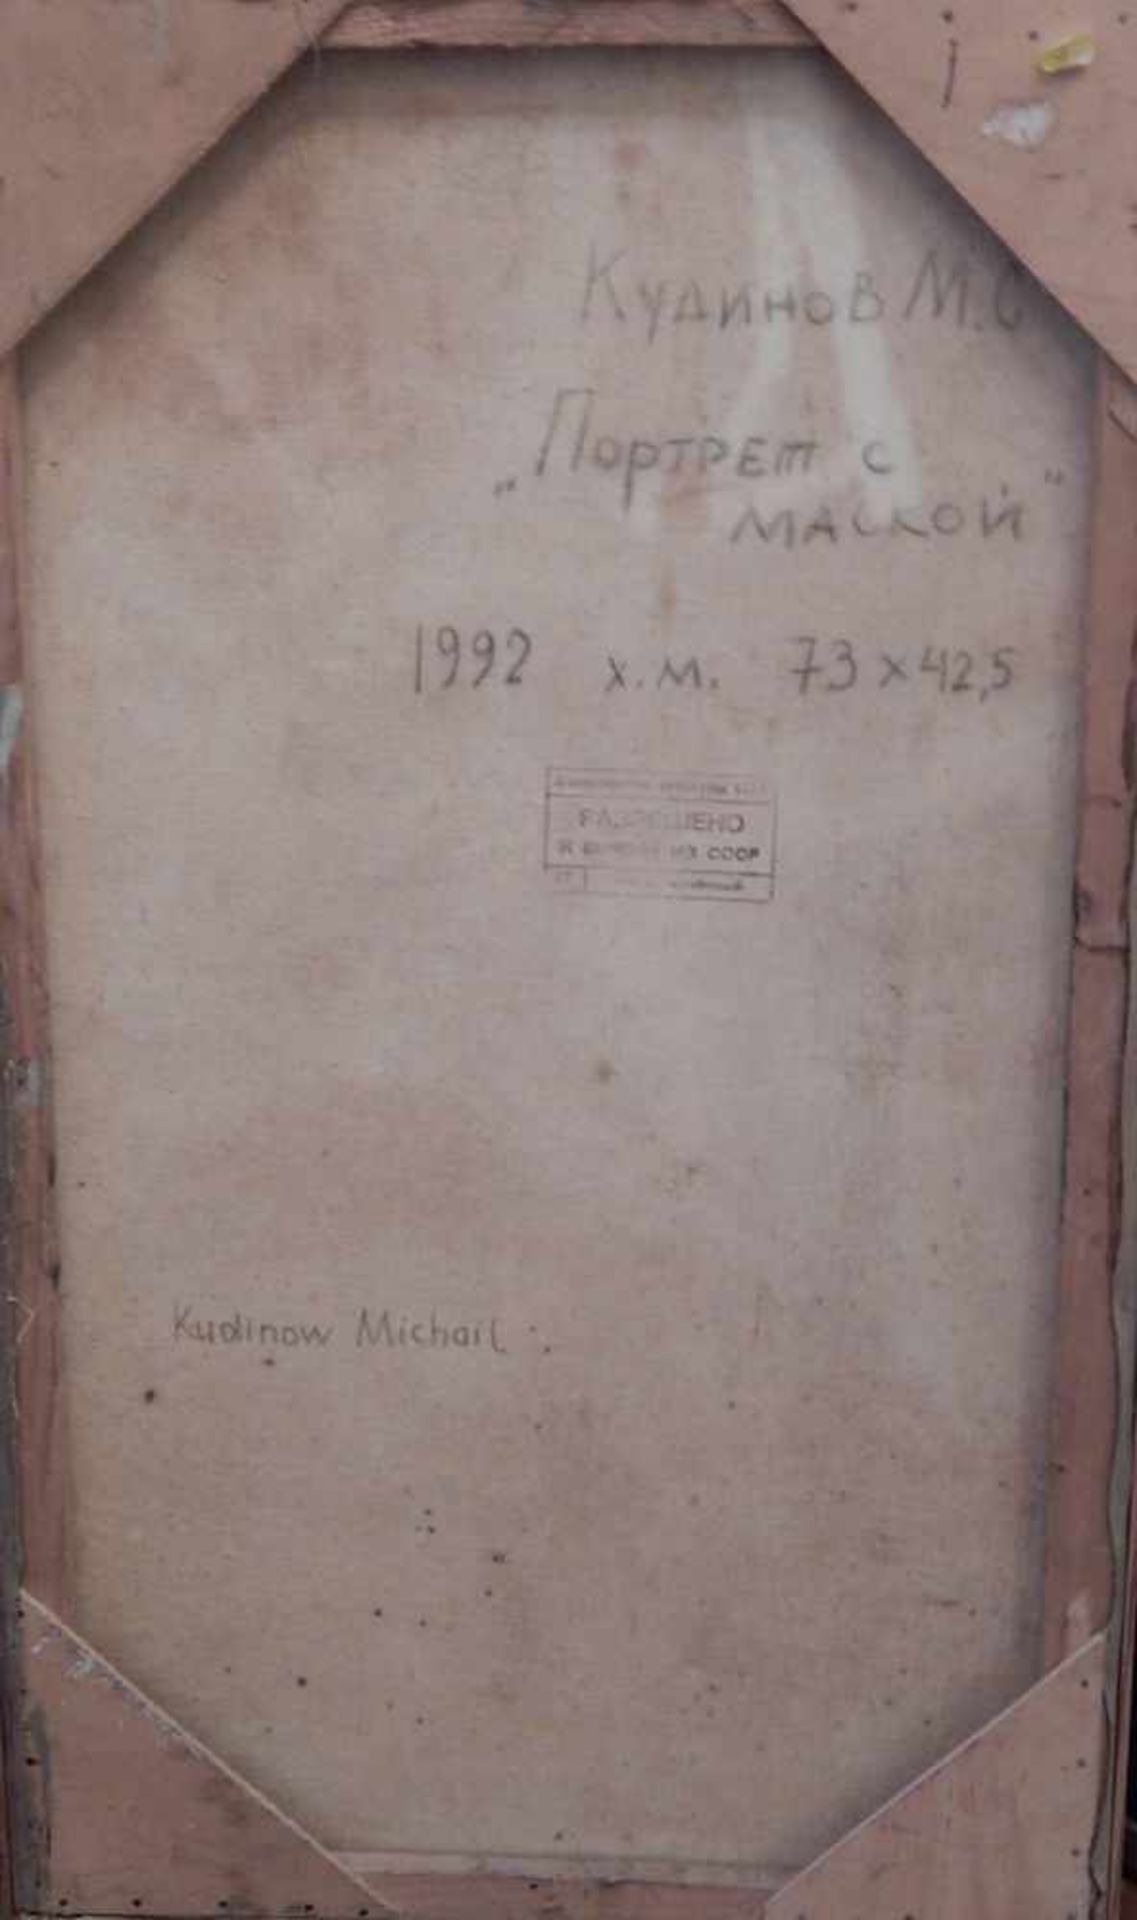 Кудинов М.С
„Портрет с
маской"
1992 х.м. 73 x 42,5
РАЗРЕШЕНО
ИЗ СССР
Kudinow Michail